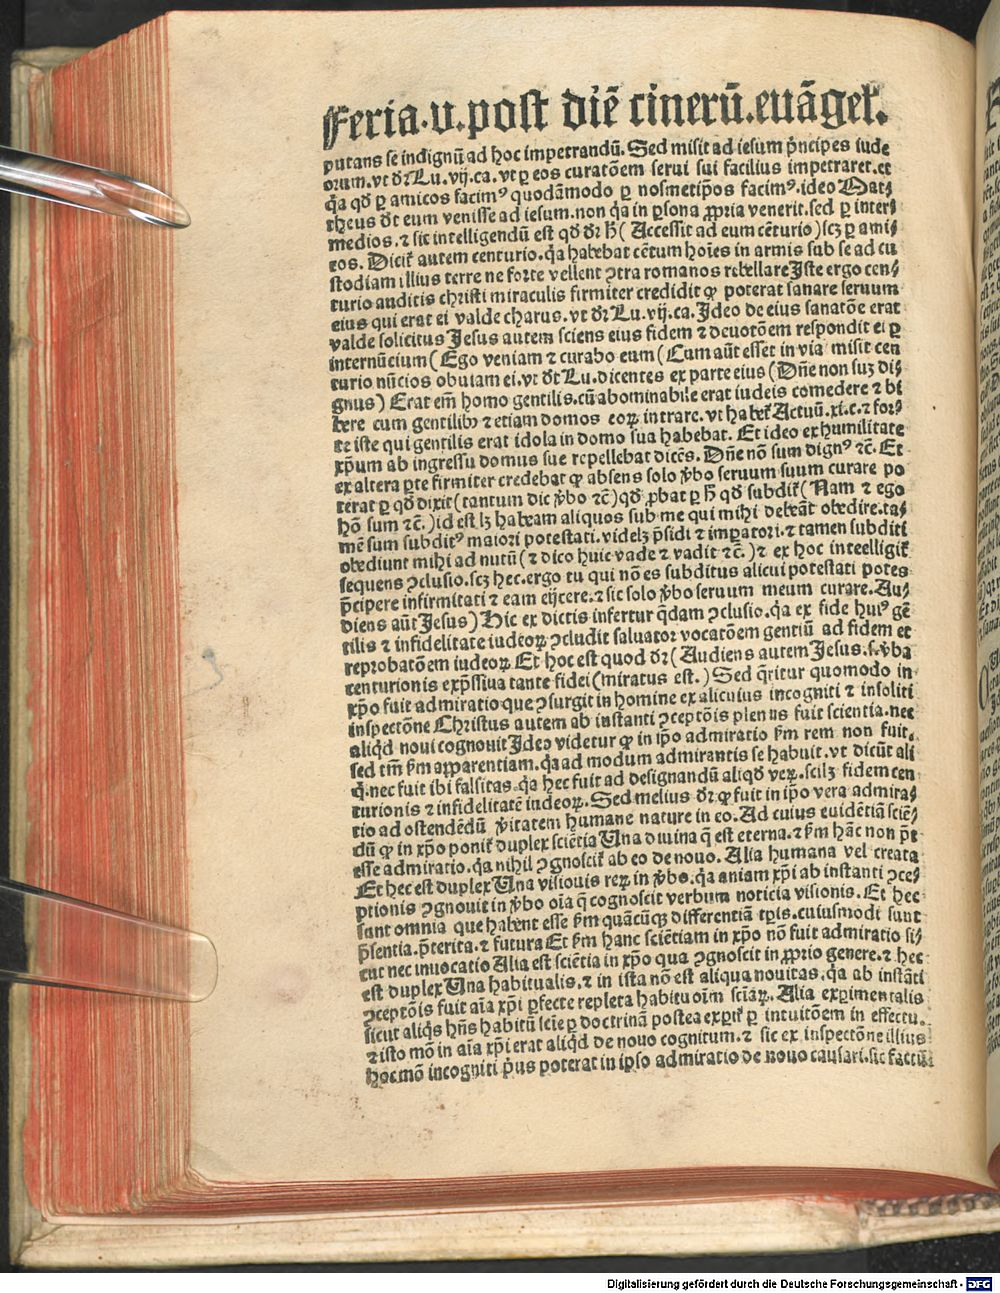 Feria.v.post diē cinerū.euāgel̄.
putans se indignū ad hoc impetrandū. Sed misit ad iesum p̄ncipes iude
orum.vt dr̄ Lu.vij.ca.vt ꝑ eos curatōem serui sui facilius impetraret.et
q̄a qd̄ ꝑ amicos facimꝰ quodāmodo ꝑ nosmetip̄os facimꝰ.ideo Mat⸗
theus dt̄ eum venisse ad iesum.non q̄a in ꝑsona ꝓpria venerit.sed ꝑ inter⸗
medios.⁊ sic intelligendū est qd̄ dr̄ h̄ (Accessit ad eum cēturio) scꝫ ꝑ ami⸗
cos. Dicit̄ autem centurio.q̄a habebat cētum hoīes in armis sub se ad cu
stodiam illius terre ne forte vellent ꝯtra romanos rebellare Iste ergo cen⸗
turio auditis christi miraculis firmiter credidit ꝙ poterat sanare seruum
eius qui erat ei valde charus.vt dr̄ Lu.vij.ca. Ideo de eius sanatōe erat
valde solicitus Jesus autem sciens eius fidem ⁊ deuotōem respondit ei ꝑ
internūcium (Ego veniam ⁊ curabo eum (Cum aūt esset in via misit cen
turio nūcios obuiam ei.vt dt̄ Lu.dicentes ex parte eius (Dn̄e non suꝫ di⸗
gnus) Erat em̄ homo gentilis.cū abominabile erat iudeis comedere ⁊ bi
bere cum gentilibꝰ ⁊ etiam domos eoꝝ intrare.vt habet̄ Actuū.xi.c.⁊ for⸗
te iste qui gentilis erat idola in domo sua habebat. Et ideo ex humilitate
xp̄um ab ingressu domus sue repellebat dicēs. Dn̄e nō sum dignꝰ ⁊c̄. Et
ex altera ꝑte firmiter credebat ꝙ absens solo v̄bo seruum suum curare po
terat ꝑ qd̄ dixit (tantum dic v̄bo ⁊c̄) qd̄ ꝓbat ꝑ h̄ qd̄ subdit̄ (Nam ⁊ ego
hō sum ⁊c̄.) id est lꝫ habeam aliquos sub me qui mihi debeāt obedire.ta⸗
mē sum subditꝰ maiori potestati.videlꝫ p̄sidi ⁊ imꝑatori.⁊ tamen subditi
obediunt mihi ad nutū (⁊ dico huic vade ⁊ vadit ⁊c̄.) ⁊ ex hoc inteelligit̄
sequens ꝯclusio.scꝫ hec.ergo tu qui nō es subditus alicui potestati potes
p̄cipere infirmitati ⁊ eam eijcere.⁊ sic solo v̄bo seruum meum curare. Au⸗
diens aūt Jesus) Hic ex dictis infertur q̄dam ꝯclusio.q̄a ex fide huiꝰ gē
tilis ⁊ infidelitate iudeoꝝ ꝯcludit saluator vocatōem gentiū ad fidem et
reprobatōem iudeoꝝ Et hoc est quod dr̄ (Audiens autem Jesus.s.v̄ba
centurionis exp̄ssiua tante fidei (miratus est.) Sed q̄ritur quomodo in
xp̄o fuit admiratio que ꝯsurgit in homine ex alicuius incogniti ⁊ insoliti
inspectōne Christus autem ab instanti ꝯceptōis plenus fuit scientia.nec
aliqd̄ noui cognouit Ideo videtur ꝙ in ip̄o admiratio ẜm rem non fuit.
sed tm̄ ẜm apparentiam.q̄a ad modum admirantis se habuit.vt dicūt ali
q̄.nec fuit ibi falsitas.q̄a hec fuit ad designandū aliqd̄ veꝝ.scilꝫ fidem cen
turionis ⁊ infidelitatē iudeoꝝ. Sed melius dr̄ ꝙ fuit in ip̄o vera admira⸗
tio ad ostendēdū v̄itatem humane nature in eo. Ad cuius euidētiā sciē⸗
dū ꝙ in xp̄o ponit̄ duplex sciētia Una diuina q̄ est eterna.⁊ ẜm hāc non p̄t
esse admiratio.q̄a nihil ꝯgnoscit̄ ab eo de nouo. Alia humana vel creata
Et hec est duplex Una visiouis reꝝ in v̄bo.q̄a aniam xp̄i ab instanti ꝯce⸗
ptionis ꝯgnouit in v̄bo oīa q̄ cognoscit verbum noticia visionis. Et hec
sunt omnia que habent esse ẜm quācūqꝫ differentiā tp̄is.cuiusmodi sunt
p̄sentia.p̄terita.⁊ futura Et ẜm hanc sciētiam in xp̄o nō fuit admiratio si⸗
cut nec inuocatio Alia est sciētia in xp̄o qua ꝯgnoscit in ꝓprio genere.⁊ hec
est duplex Una habitualis.⁊ in ista nō est aliqua nouitas.q̄a ab instāti
ꝯceptōis fuit aīa xp̄i ꝑfecte repleta habitu oīm sciāꝝ. Alia exꝑimentalis
sicut aliq̄s hn̄s habitū sciē ꝑ doctrinā postea exꝑit̄ ꝑ intuitōem in effectu.
⁊ isto mō in aīa xp̄i erat aliqd̄ de nouo cognitum.⁊ sic ex inspectōne illius
hoc mō incogniti p̄us poterat in ipso admiratio de nouo causari.sic factū
Digitalisierung gefördert durch die Deutsche Forschungsgemeinschaft - DFG